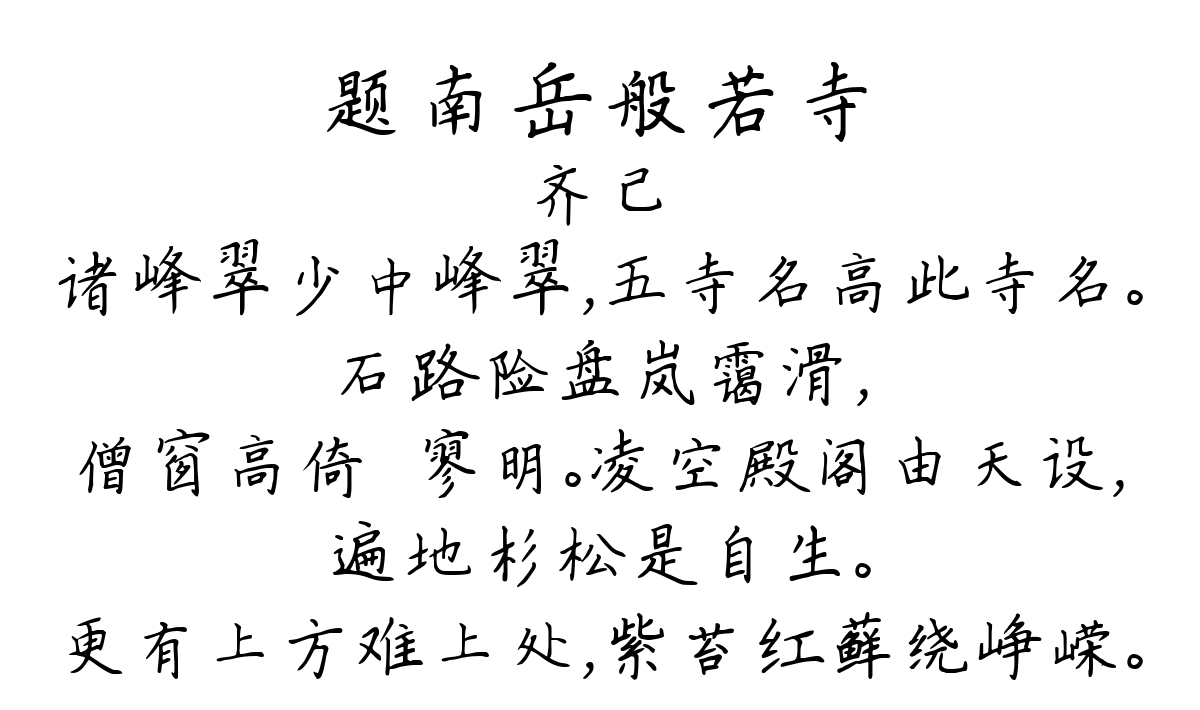 题南岳般若寺
齐己
诸峰翠少中峰翠,五寺名高此寺名。
石路险盘岚霭滑,
僧窗高倚 寥明。凌空殿阁由天设,
遍地杉松是自生。
更有上方难上处,紫苔红藓绕峥嵘。